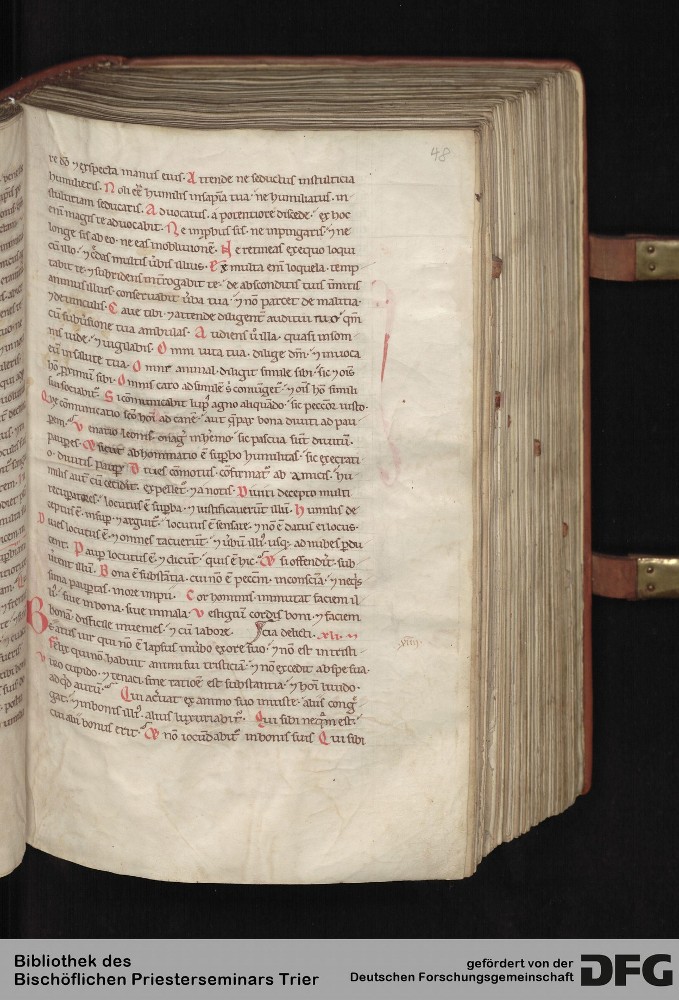 48
re dō ⁊ exspecta manus eius. Attende ne seductus instulticia
humilieris. Noli eē humilis insapia tua ne humiliatus in
stultitiam seducaris. Aduocatus a potentiore discede ex hoc
enī magis te aduocabit. Ne improbus sis ne inpingaris ⁊ ne
longe sis ab eo ne eas inobliuionē. Ne retineas exequo loqui
cū illo ⁊ credas multis ūbis illius. Ex multa enī loquela temp
tabit te ⁊ subridens interrogabit te de absconditis tuis inmitis
animus illius conseruabit ūba tua ⁊ nō parcet de malitia
⁊ de uinculis. Caue tibi ⁊ attende diligent auditui tuo qm
cū subūsione tua ambulas. Audiens ū illa quasi insom
nis uide ⁊ uigilabis. Omni uita tua dilige dm ⁊ inuoca
eū insalute tua. Omne animal diligit simile sibi sic ⁊ ois
hō proximū sibi. Omnis caro ad similē s coniunget ⁊ ois hō simili
sui sociabit. Si cōmunicabit lup agno aliquādo sic peccor iusto.
Que cōmunicatio scō hoi ad canē aut que pax bona diuiti ad pau
pem. Venatio leonis onag inhemo sic pascua sunt diuitū
paupes. Et sicut abhominatio ē supbo humilitas sic execrati
o diuitis pauper. Diues cōmotus cōfirmat ab amicis hu
milis aut cū ceciderit expellet ⁊ a notis. Diuiti decepto multi
recuperatores locutus ē supba ⁊ iustificauerūt illū. humilis de
ceptus ē insup ⁊ arguit locutus ē sensate ⁊ nō ē datus ei locus.
Diues locutus ē ⁊ omnes tacuerūt ⁊ ūbū illi usq; ad nubes pdu
cent. Paup locutus ē ⁊ dicunt quis ē hic. Et si offenderit sub
uertent illū. Bona ē substātia cui nō ē peccm inconscia ⁊ neqs
sima paupertas inore impii. Cor hominis inmutat faciem il
li siue inbona siue inmala. Vestigiū cordis boni ⁊ faciem
bonā difficile inuenies ⁊ cū labore.
Beatus uir qui nō ē lapsus inūbo exore suo ⁊ nō est intristi
Felix qui nō habuit animi sui tristiciā ⁊ nō excedit ab spe sua.
Viro cupido ⁊ tenaci sine ratiōe est substantia ⁊ hoī liuido
ad qd aurū. Qui aceruat ex animo suo iniuste aliis cong
gat ⁊ inbonis illi alius luxuriabit. Qui sibi neqm est
cui alii bonus erit. Et nō iocūdabit inbonis suis Qui sibi
viiii
Bibliothek des
Bischöflichen Priesterseminars Trier
gefördert von der
Deutschen Forschungsgemeinschaft
DFG